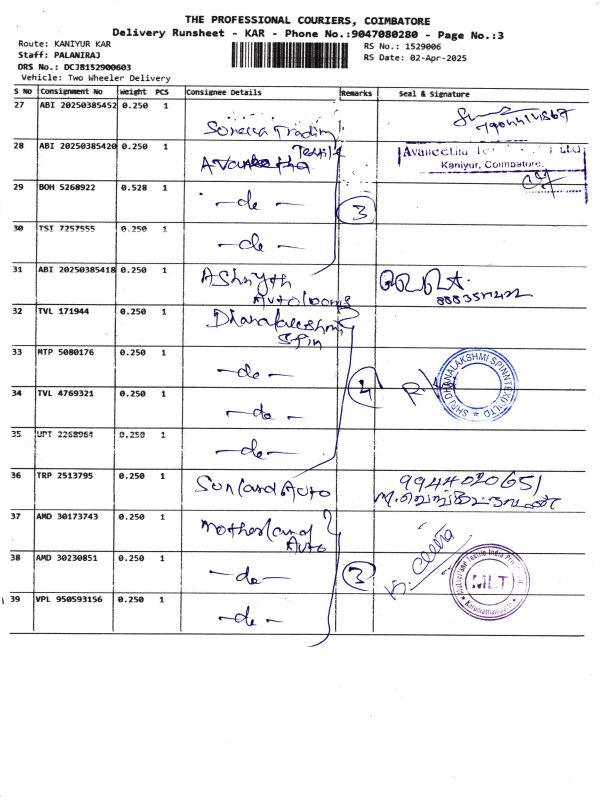 THE PROFESSIONAL COURIERS, COIMBATORE
Delivery Runsheet - KAR - Phone No.:9047080280 - Page No.:3
Route: KANIYUR KAR
RS No.: 1529006
Staff: PALANIRAJ
RS Date: 02-Apr-2025
DRS No.: DCJB152900603
Vehicle: Two Wheeler Delivery
S No Consignment No Weight PCS Consignee Details Remarks Seal & Signature
27 ABI 20250385452 0.250 1
Trading
28 ABI 20250385420 0.250 1
Kaniyur, Coimbatore.
29 BOH 5268922 0.528 1 -do- 3
30 TSI 7257555 0.250 1 -do-
31 ABI 20250385418 0.250 1
32 TVL 171944 0.250 1
Spin
33 MTP 5080176 0.250 1 -do-
SHRI DHANALAKSHMI SPINNTEX (P) LTD
34 TVL 4769321 0.250 1 -do- 4
35 UPT 2268961 0.250 1 -do-
36 TRP 2513795 0.250 1 Sunland Auto 9944020651
37 AMD 30173743 0.250 1 Motherland
Auto
38 AMD 30230851 0.250 1 -do- 3
MLT
39 VPL 950593156 0.250 1 -do-